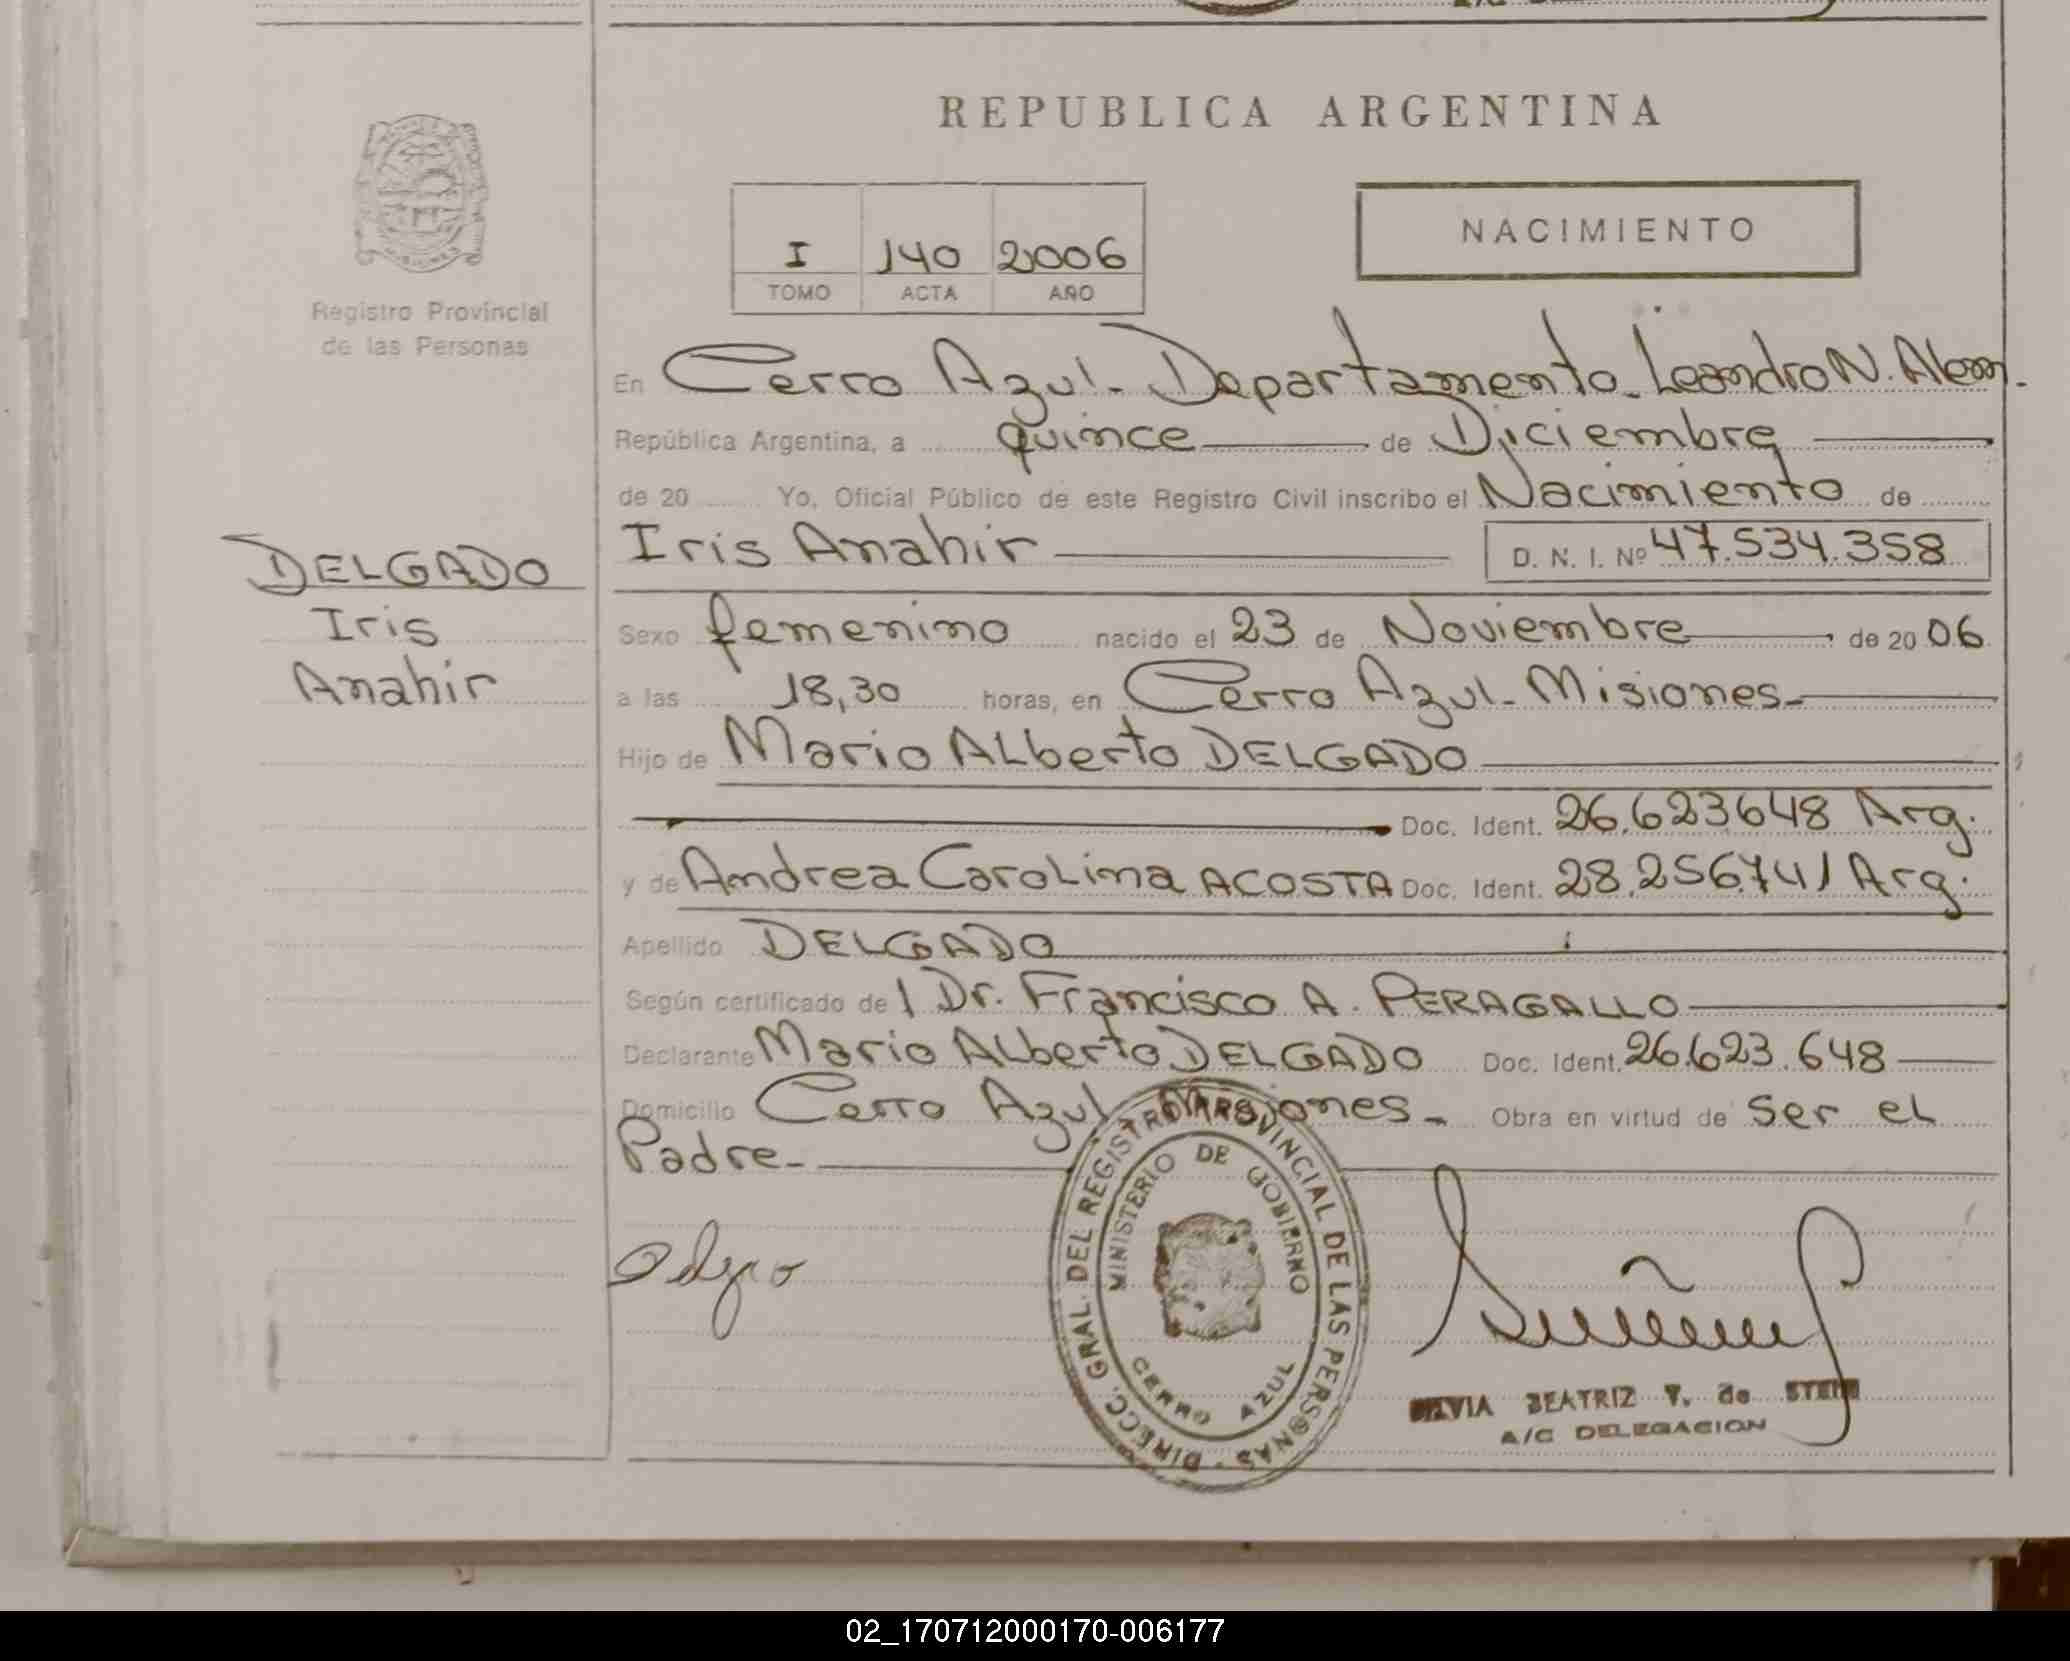 REPUBLICA ARGENTINA
NACIMIENTO
I 140 2006
TOMO ACTA AÑO
Registro Provincial
de las Personas
En Cerro Azul - Departamento Leandro N. Alem.
República Argentina, a quince de Diciembre
de 20 Yo, Oficial Público de este Registro Civil inscribo el Nacimiento de
Iris Anahir D. N. I. Nº 47.534.358
DELGADO
Iris
Anahir
Sexo femenino nacido el 23 de Noviembre de 20 06
a las 18,30 horas, en Cerro Azul - Misiones -
Hijo de Mario Alberto DELGADO
Doc. Ident. 26.623648 Arg.
y de Andrea Carolina ACOSTA Doc. Ident. 28.256.741 Arg.
Apellido DELGADO
Según certificado de l Dr. Francisco A. PERAGALLO
Declarante Mario Alberto DELGADO Doc. Ident. 26.623.648
Domicilio Cerro Azul Misiones - Obra en virtud de ser el
Padre -
DIRECC. GRAL. DEL REGISTRO PROVINCIAL DE LAS PERSONAS
MINISTERIO DE GOBIERNO
CERRO AZUL
SILVIA BEATRIZ V. de STEIN
A/C DELEGACION
02_170712000170-006177